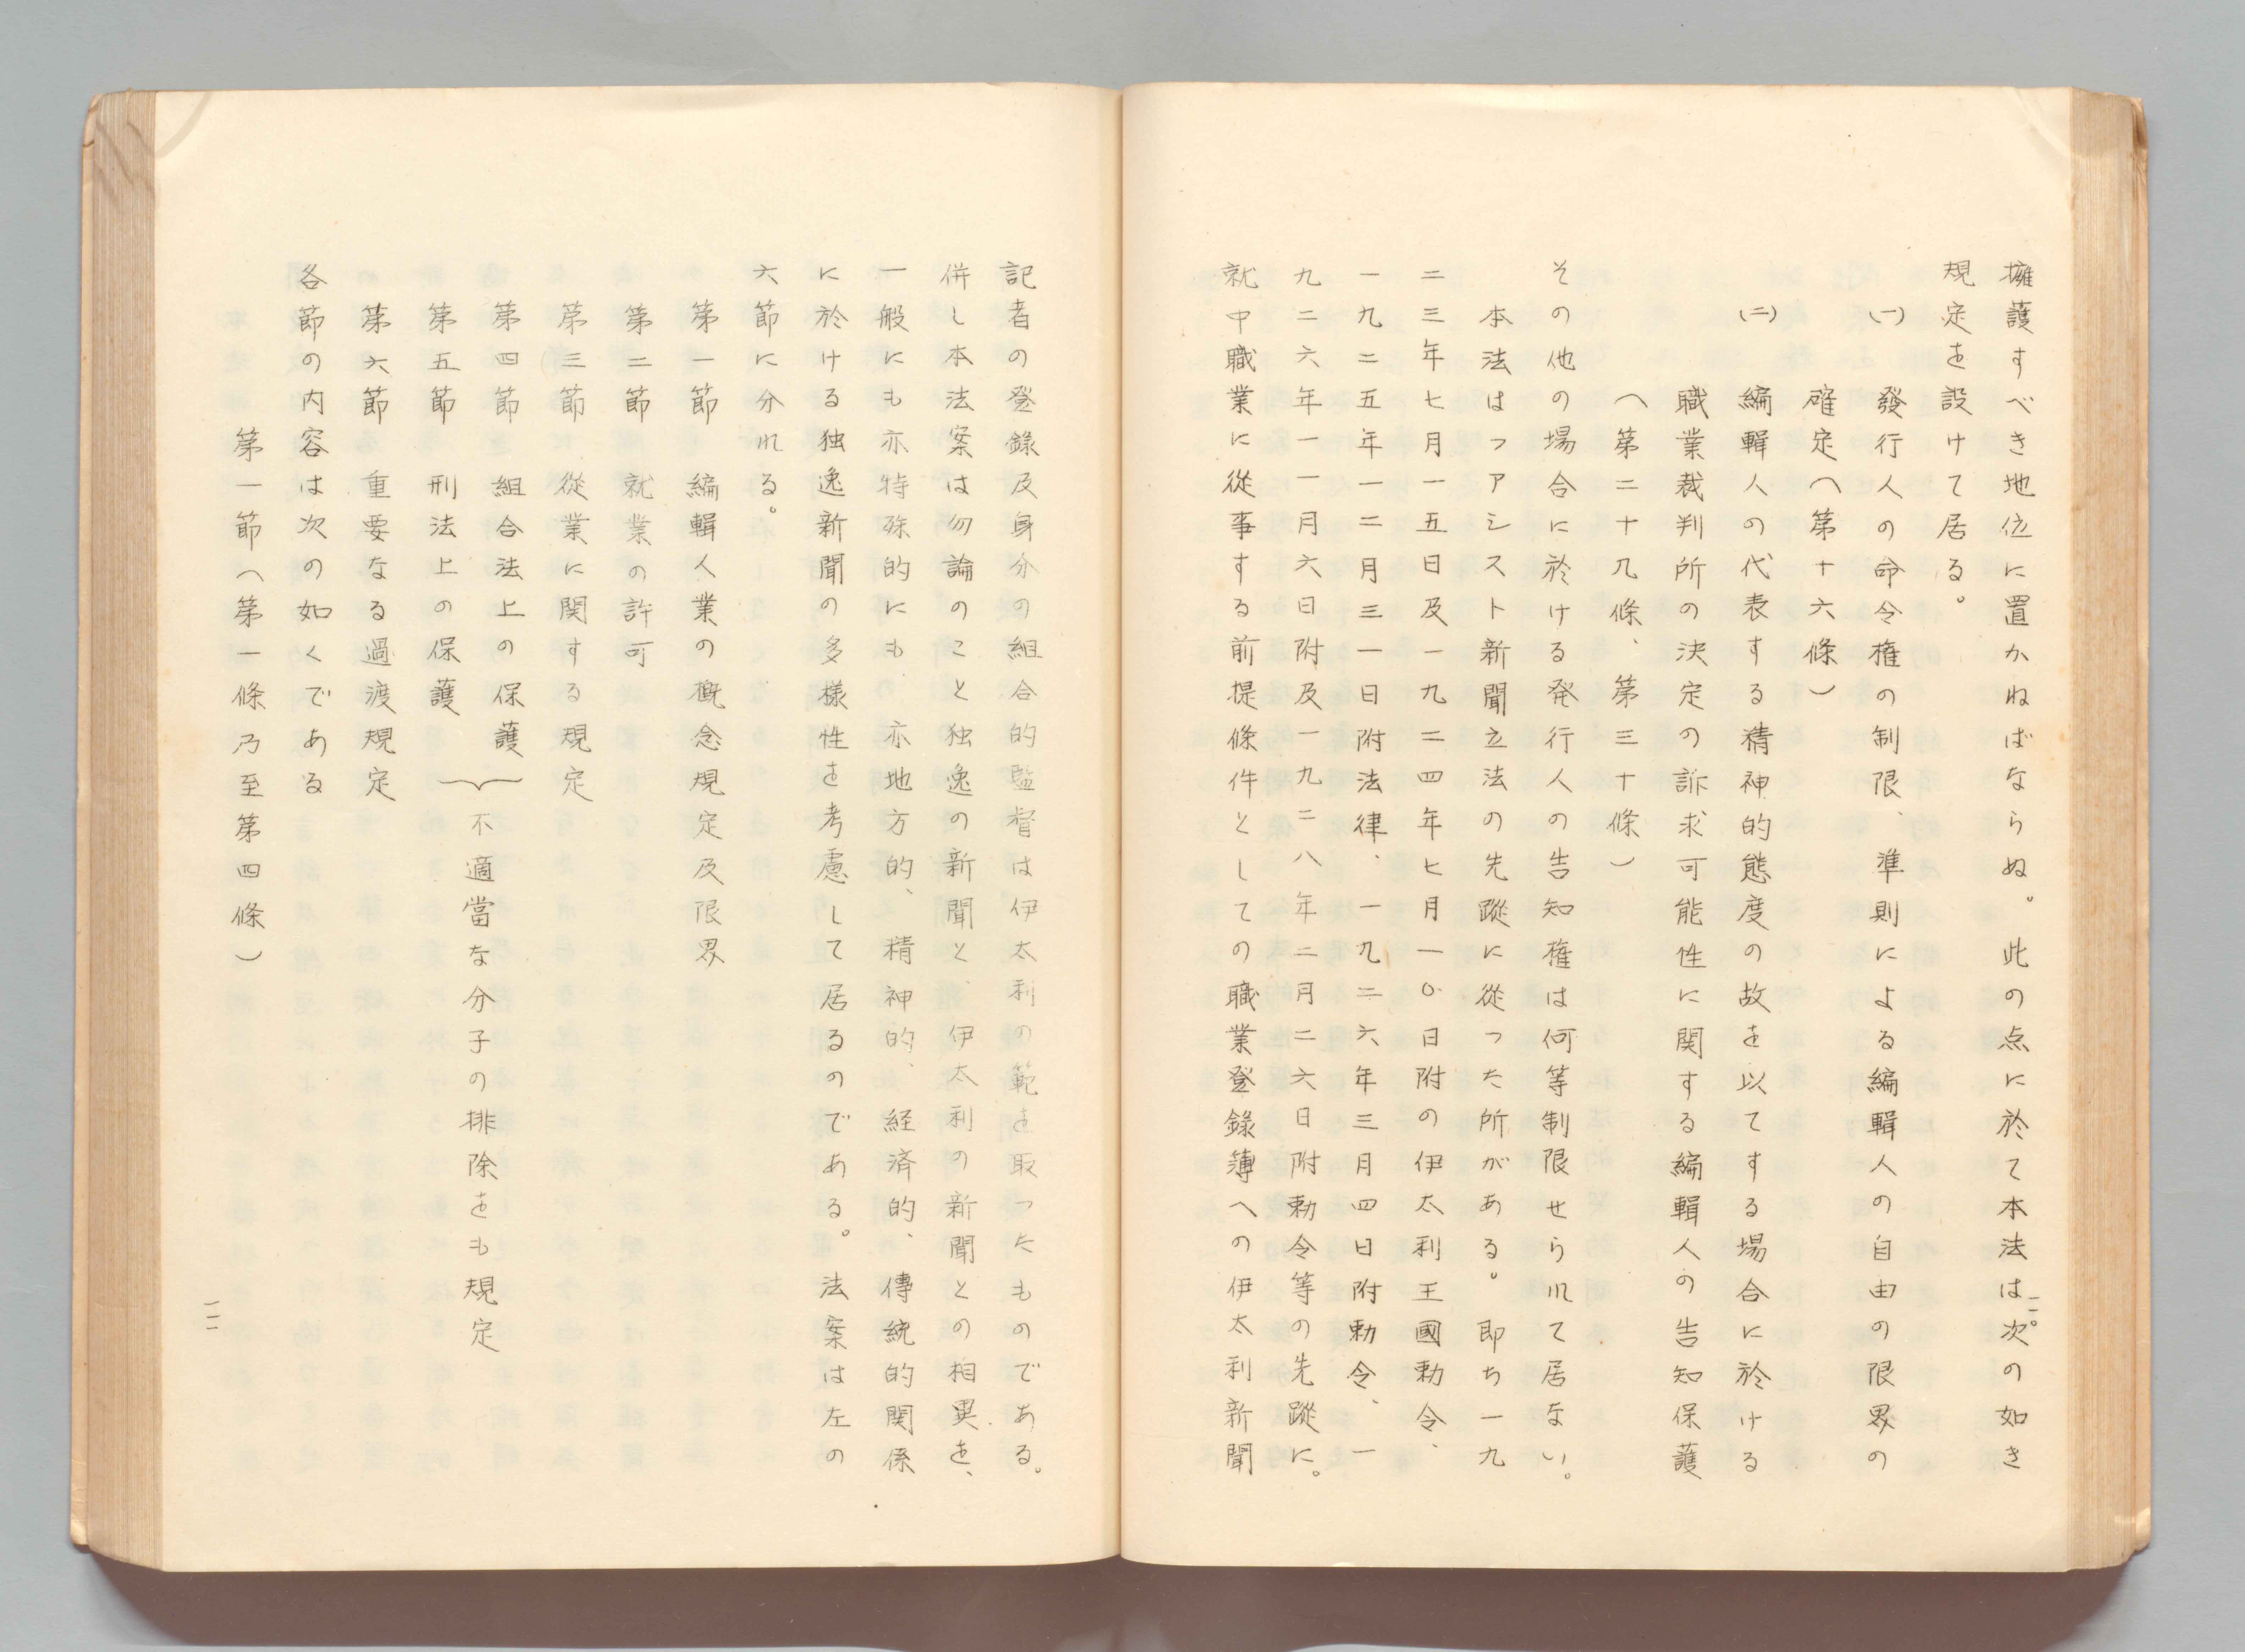 擁護すべき地位に置かねばならぬ。此の点に於て本法は次の如き
規定を設けて居る。
(一) 發行人の命令権の制限、準則による編輯人の自由の限界の
確定(第十六條)
(二) 編輯人の代表する精神的態度の故を以てする場合に於ける
職業裁判所の決定の訴求可能性に関する編輯人の告知保護
(第二十九條、第三十條)
その他の場合に於ける発行人の告知権は何等制限せられて居ない。
本法はファシスト新聞立法の先蹤に從った所がある。即ち一九
二三年七月一五日及一九二四年七月一〇日附の伊太利王國勅令、
一九二五年一二月三一日附法律、一九二六年三月四日附勅令、一
九二六年一一月六日附及一九二八年二月二六日附勅令等の先蹤に。
就中職業に從事する前提條件としての職業登録簿への伊太利新聞
二〇
記者の登錄及身分の組合的監督は伊太利の範を取ったものである。
併し本法案は勿論のこと独逸の新聞と、伊太利の新聞との相異を、
一般にも亦特殊的にも、亦地方的、精神的、経済的、傳統的関係
に於ける独逸新聞の多樣性を考慮して居るのである。法案は左の
六節に分れる。
第一節 編輯人業の概念規定及限界
第二節 就業の許可
第三節 從業に関する規定
第四節 組合法上の保護
第五節 刑法上の保護
不適當な分子の排除をも規定
第六節 重要なる過渡規定
各節の内容は次の如くである
第一節(第一條乃至第四條)
二一